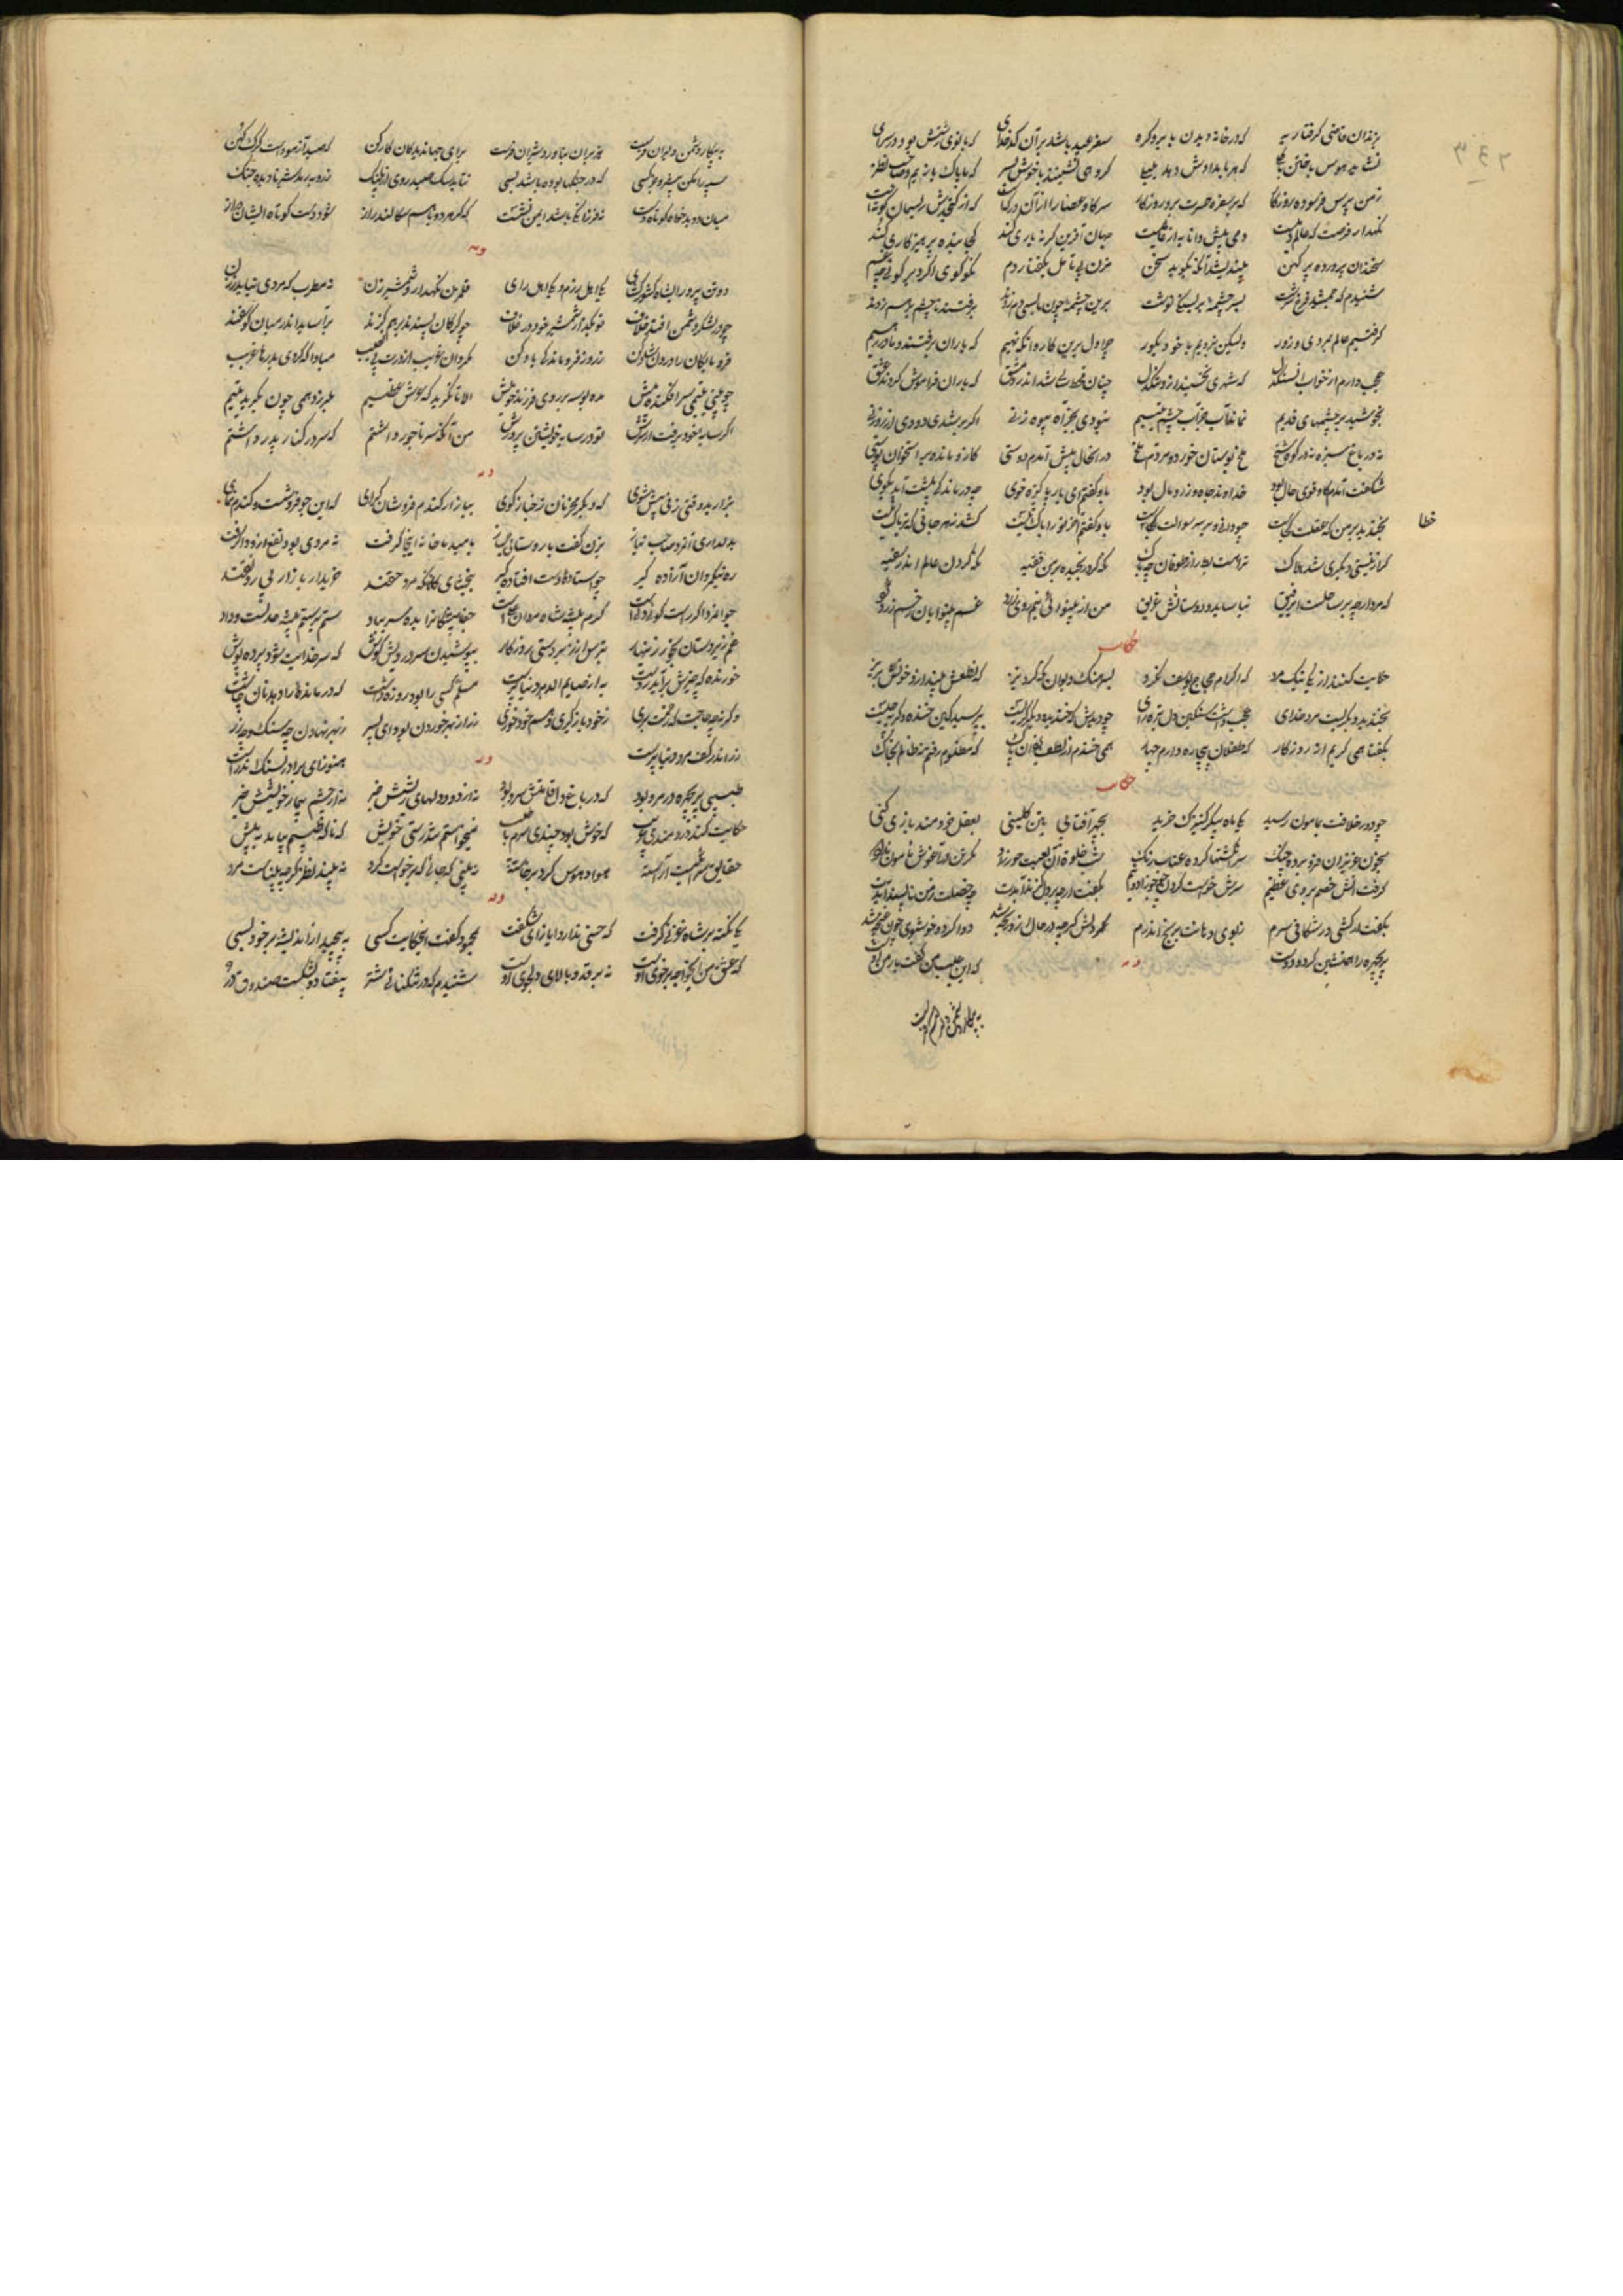 ٢٤٣
بزندان قاضی گرفتار به که در خانه دیدن بابرو گره سفر عید باشد بران کدخدای که بانوی زشتش بود در سرای
نشاید هوس باختن با گلی که هر بامدادش بود بلبلی گروهی نشینند با خوش پسر که ما پاک بازیم و صاحب نظر
زمن پرس فرسوده روزگار که بر سفره حسرت برد روزه دار سر گاو عصار از آن در که است که از کنجدش ریسمان کوته است
نگهدار فرصت که عالم دمیست دمی پیش دانا به از عالمیست جهان آفرین گر نه یاری کند کجا بنده پرهیزگاری کند
سخندان پرورده پیر کهن بیندیشد آنگه بگوید سخن مزن بی تامل بگفتار دم نکو گوی اگر دیر گوئی چه غم
شنیدم که جمشید فرخ سرشت بسر چشمه بر بسنگی نوشت برین چشمه چون ما بسی دم زدند برفتند چو چشم بر هم زدند
گرفتیم عالم بمردی و زور ولیکن نبردیم با خود بگور چرا دل برین کاروانگه نهیم که یاران برفتند و ما در رهیم
عجب دارم از خواب آن سنگدل که شهری نخسپند ازو تنگدل چنان قحط سالی شد اندر دمشق که یاران فراموش کردند عشق
بخوشید سرچشمهای قدیم نماند آب جز آب چشم یتیم نبودی بجز آه بیوه زنی اگر بر شدی دودی از روزنی
نه در باغ سبزه نه در کوه شخ ملخ بوستان خورد و مردم ملخ در انحال پیش آمدم دوستی کازو مانده بر استخوان پوستی
شگفت آمدم کو قوی حال بود خداوند جاه و زر و مال بود بدو گفتم ای یار پاکیزه خوی چه درماندگی پیشت آمد بگوی
بخندید بر من که عقلت کجاست چو دانی و پرسی سوالت خطاست
خطا
گر از نیستی دیگری شد هلاک ترا هست بط را ز طوفان چه باک نگه کرد رنجیده در من فقیه نگه کردن عالم اندر سفیه
که مرد ارچه بر ساحلست ای رفیق نیاساید و دوستانش غریق من از بینوائی نیم روی زرد غم بینوایان رخم زرد کرد
حکایت
حکایت کنند از یکی نیک مرد که اکرام حجاج یوسف نکرد بسرهنگ دیوان نگه کرد تیز که نطعش بینداز و خونش بریز
بخندید و بگریست مرد خدای عجب داشت سنگین دل تیره رای چو دیدش که خندید و دیگر گریست بپرسید کین خنده و گریه چیست
بگفتا همی گریم از روزگار که طفلان بیچاره دارم چهار همی خندم از لطف یزدان پاک که مظلوم رفتم نه ظالم بخاک
حکایت
چو دور خلافت بمامون رسید یکی ماه پیکر کنیزک خرید بچهر آفتابی بتن گلبنی بعقل خردمند بازی کنی
بخون عزیزان فرو برده چنگ سر انگشتها کرده عناب رنگ شب خلوة آن لعبت حور زاد مگر تن در آغوش مامون نداد
گرفت آتش خشم در وی عظیم سرش خواست کردن چو جوزا دو نیم بگفت از چه بر دل گزند آمدت چه خصلت ز من ناپسند آمدت
بگفت ار کشی ور شکافی سرم ز بوی دهانت برنج اندرم دوا کرد و خوشبوی چون غنچه شد
پریچهره را همنشین کرد و دوست که این عیب من گفت یار من اوست
وله
به پیکار دشمن دلیران فرست
به پیکار دشمن دلیران فرست هژبران بناورد شیران فرست برای جهاندیدگان کار کن که صید آزمودست گرگ کهن
سپه را مکن پیشرو جز کسی که در جنگها بوده باشد بسی نتابد سگ صید روی از پلنگ ز روبه رمد شیر نادیده جنگ
میان دو بدخواه کوتاه دست نه فرزانگی باشد ایمن نشست که گر هر دو باهم سگالند راز شود دست کوتاه ایشان دراز
وله
دو تن پرور ای شاه کشورگشای یکی اهل رزم و یکی اهل رای قلمزن نگهدار و شمشیر زن نه مطرب که مردی نیاید ز زن
چو در لشکر دشمن افتد خلاف تو بگذار شمشیر خود در غلاف چو گرگان پسندند بر هم گزند برآساید اندر میان گوسفند
فرو ماندگان را درون شاد کن ز روز فروماندگی یاد کن مگردان غریب از درت بی نصیب مبادا که گردی بدرها غریب
چو بینی یتیمی سر افکنده پیش مده بوسه بر روی فرزند خویش الا تا نگرید که عرش عظیم بلرزد همی چون بگرید یتیم
اگر سایه خود برفت از سرش تو در سایه خویشتن پرورش من آنگه سر تاجور داشتم که سر در کنار پدر داشتم
وله
بزارید وقتی زنی پیش شوی که دیگر مخر نان ز خباز کوی ببازار گندم فروشان گرای که این جو فروشست و گندم نمای
بدلداری آن مرد صاحب نیاز بزن گفت با روستائی بساز بامید ما خانه اینجا گرفت نه مردی بود نفع ازو وا گرفت
ره نیکمردان آزاده گیر چو استاده دست افتاده گیر ببخشای کانانکه مرد حقند خریدار بازار بی رونقند
جوانمرد اگر راست گوئی ولیست کرم پیشه شاه مردان علیست
غم زیردستان بخور زینهار بترس از زبردستی روزگار بپوشیدن سر درویش کوش که ستر خدایت شود پرده پوش
خورنده که خیرش برآید ز دست به از صایم الدهر دنیا پرست مسلم کسی را بود روزه داشت که درمانده را دهد نان چاشت
وگرنه چه حاجت که زحمت بری ز خود باز گیری و هم خود خوری زر از بهر خوردن بود ای پسر ز بهر نهادن چه سنگ و چه زر
زر اندر کف مرد دنیا پرست هنوز ای برادر بسنگ اندرست
وله
طبیبی پریچهره در مرو بود که در باغ دل قامتش سرو بود نه از درد دلهای ریشش خبر نه از چشم بیمار خویشش خبر
حکایت کند دردمندی غریب که خوش بود چندی سرم با طبیب نمیخواستم تندرستی خویش که ناگه طبیبم نیاید به پیش
حقایق سرائیست آراسته هوا و هوس گرد برخاسته نه بینی که جائی که برخاست گرد نه بیند نظر گرچه بیناست مرد
وله
یکی نکته بر شاه غزنی گرفت که حسنی ندارد ایاز ای شگفت بمحمود گفت این حکایت کسی به پیچید از اندیشه بر خود بسی
که عشق من ای خواجه بر خوی اوست نه بر قد و بالای دلجوی اوست شنیدم که در تنگنائی شتر بیفتاد و بشکست صندوق در